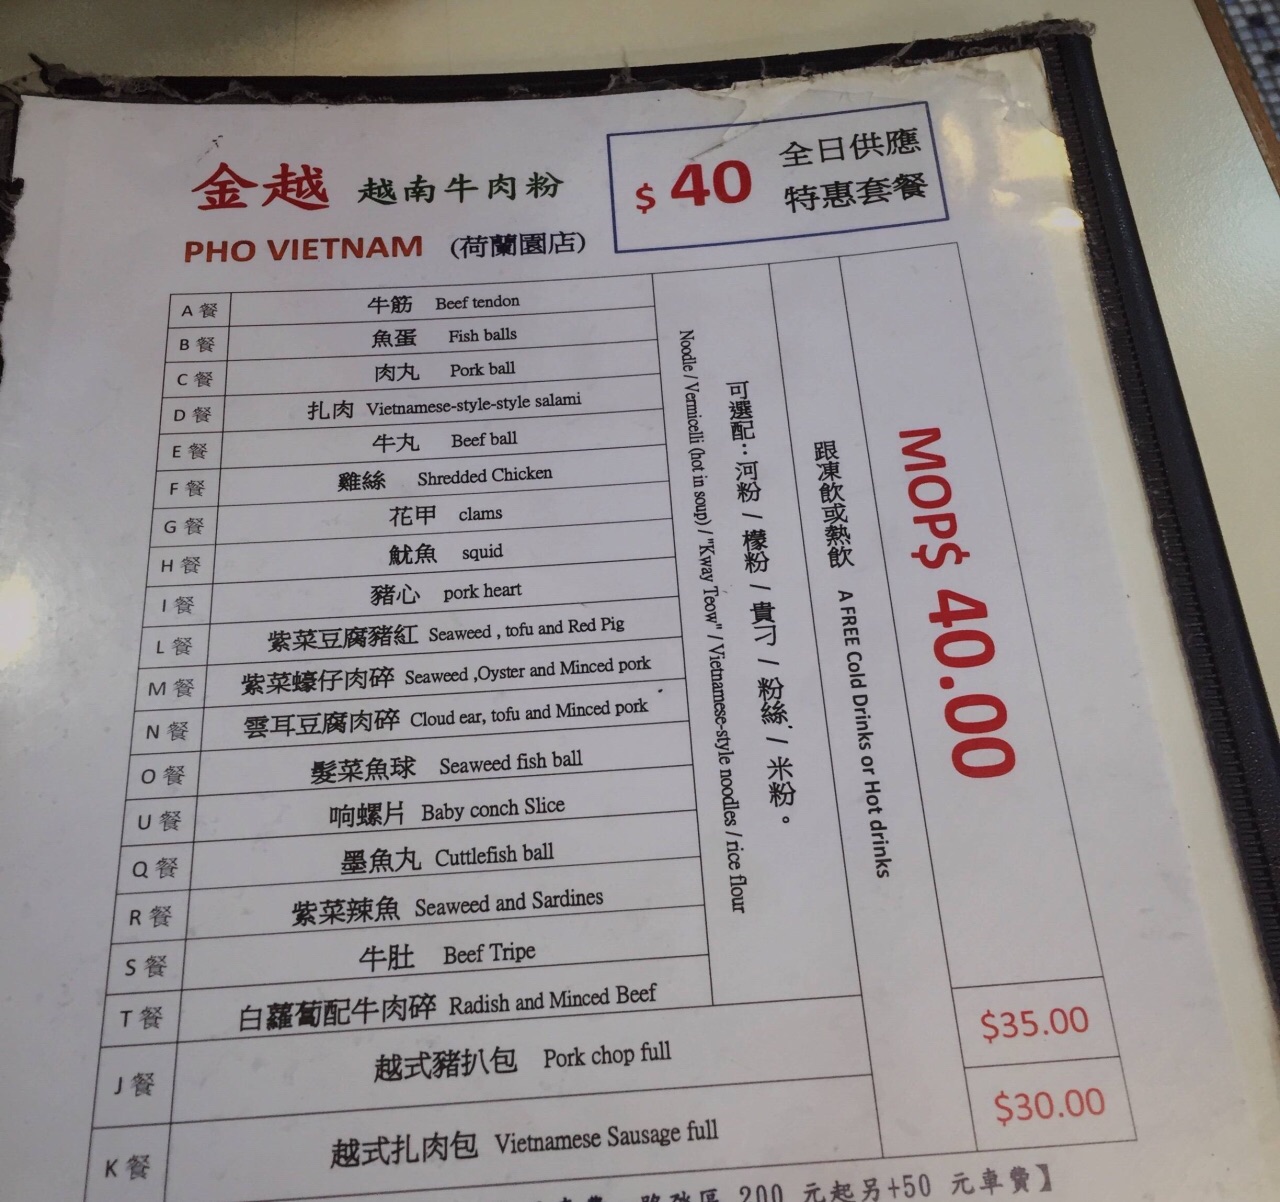 金越 越南牛肉粉
PHO VIETNAM (荷蘭園店)
$ 40 全日供應
特惠套餐
A 餐 牛筋 Beef tendon
B 餐 魚蛋 Fish balls
C 餐 肉丸 Pork ball
D 餐 扎肉 Vietnamese-style-style salami
E 餐 牛丸 Beef ball
F 餐 雞絲 Shredded Chicken
G 餐 花甲 clams
H 餐 魷魚 squid
I 餐 豬心 pork heart
L 餐 紫菜豆腐豬紅 Seaweed , tofu and Red Pig
M 餐 紫菜蠔仔肉碎 Seaweed ,Oyster and Minced pork
N 餐 雲耳豆腐肉碎 Cloud ear, tofu and Minced pork
O 餐 髮菜魚球 Seaweed fish ball
U 餐 响螺片 Baby conch Slice
Q 餐 墨魚丸 Cuttlefish ball
R 餐 紫菜辣魚 Seaweed and Sardines
S 餐 牛肚 Beef Tripe
T 餐 白蘿蔔配牛肉碎 Radish and Minced Beef
J 餐 越式豬扒包 Pork chop full
K 餐 越式扎肉包 Vietnamese Sausage full
可選配：河粉 / 檬粉 / 貴刁 / 粉絲 / 米粉。
Noodle / Vermicelli (hot in soup) / "Kway Teow" / Vietnamese-style noodles / rice flour
跟凍飲或熱飲 A FREE Cold Drinks or Hot drinks
MOP$ 40.00
$35.00
$30.00
200 元起另+50 元車費】